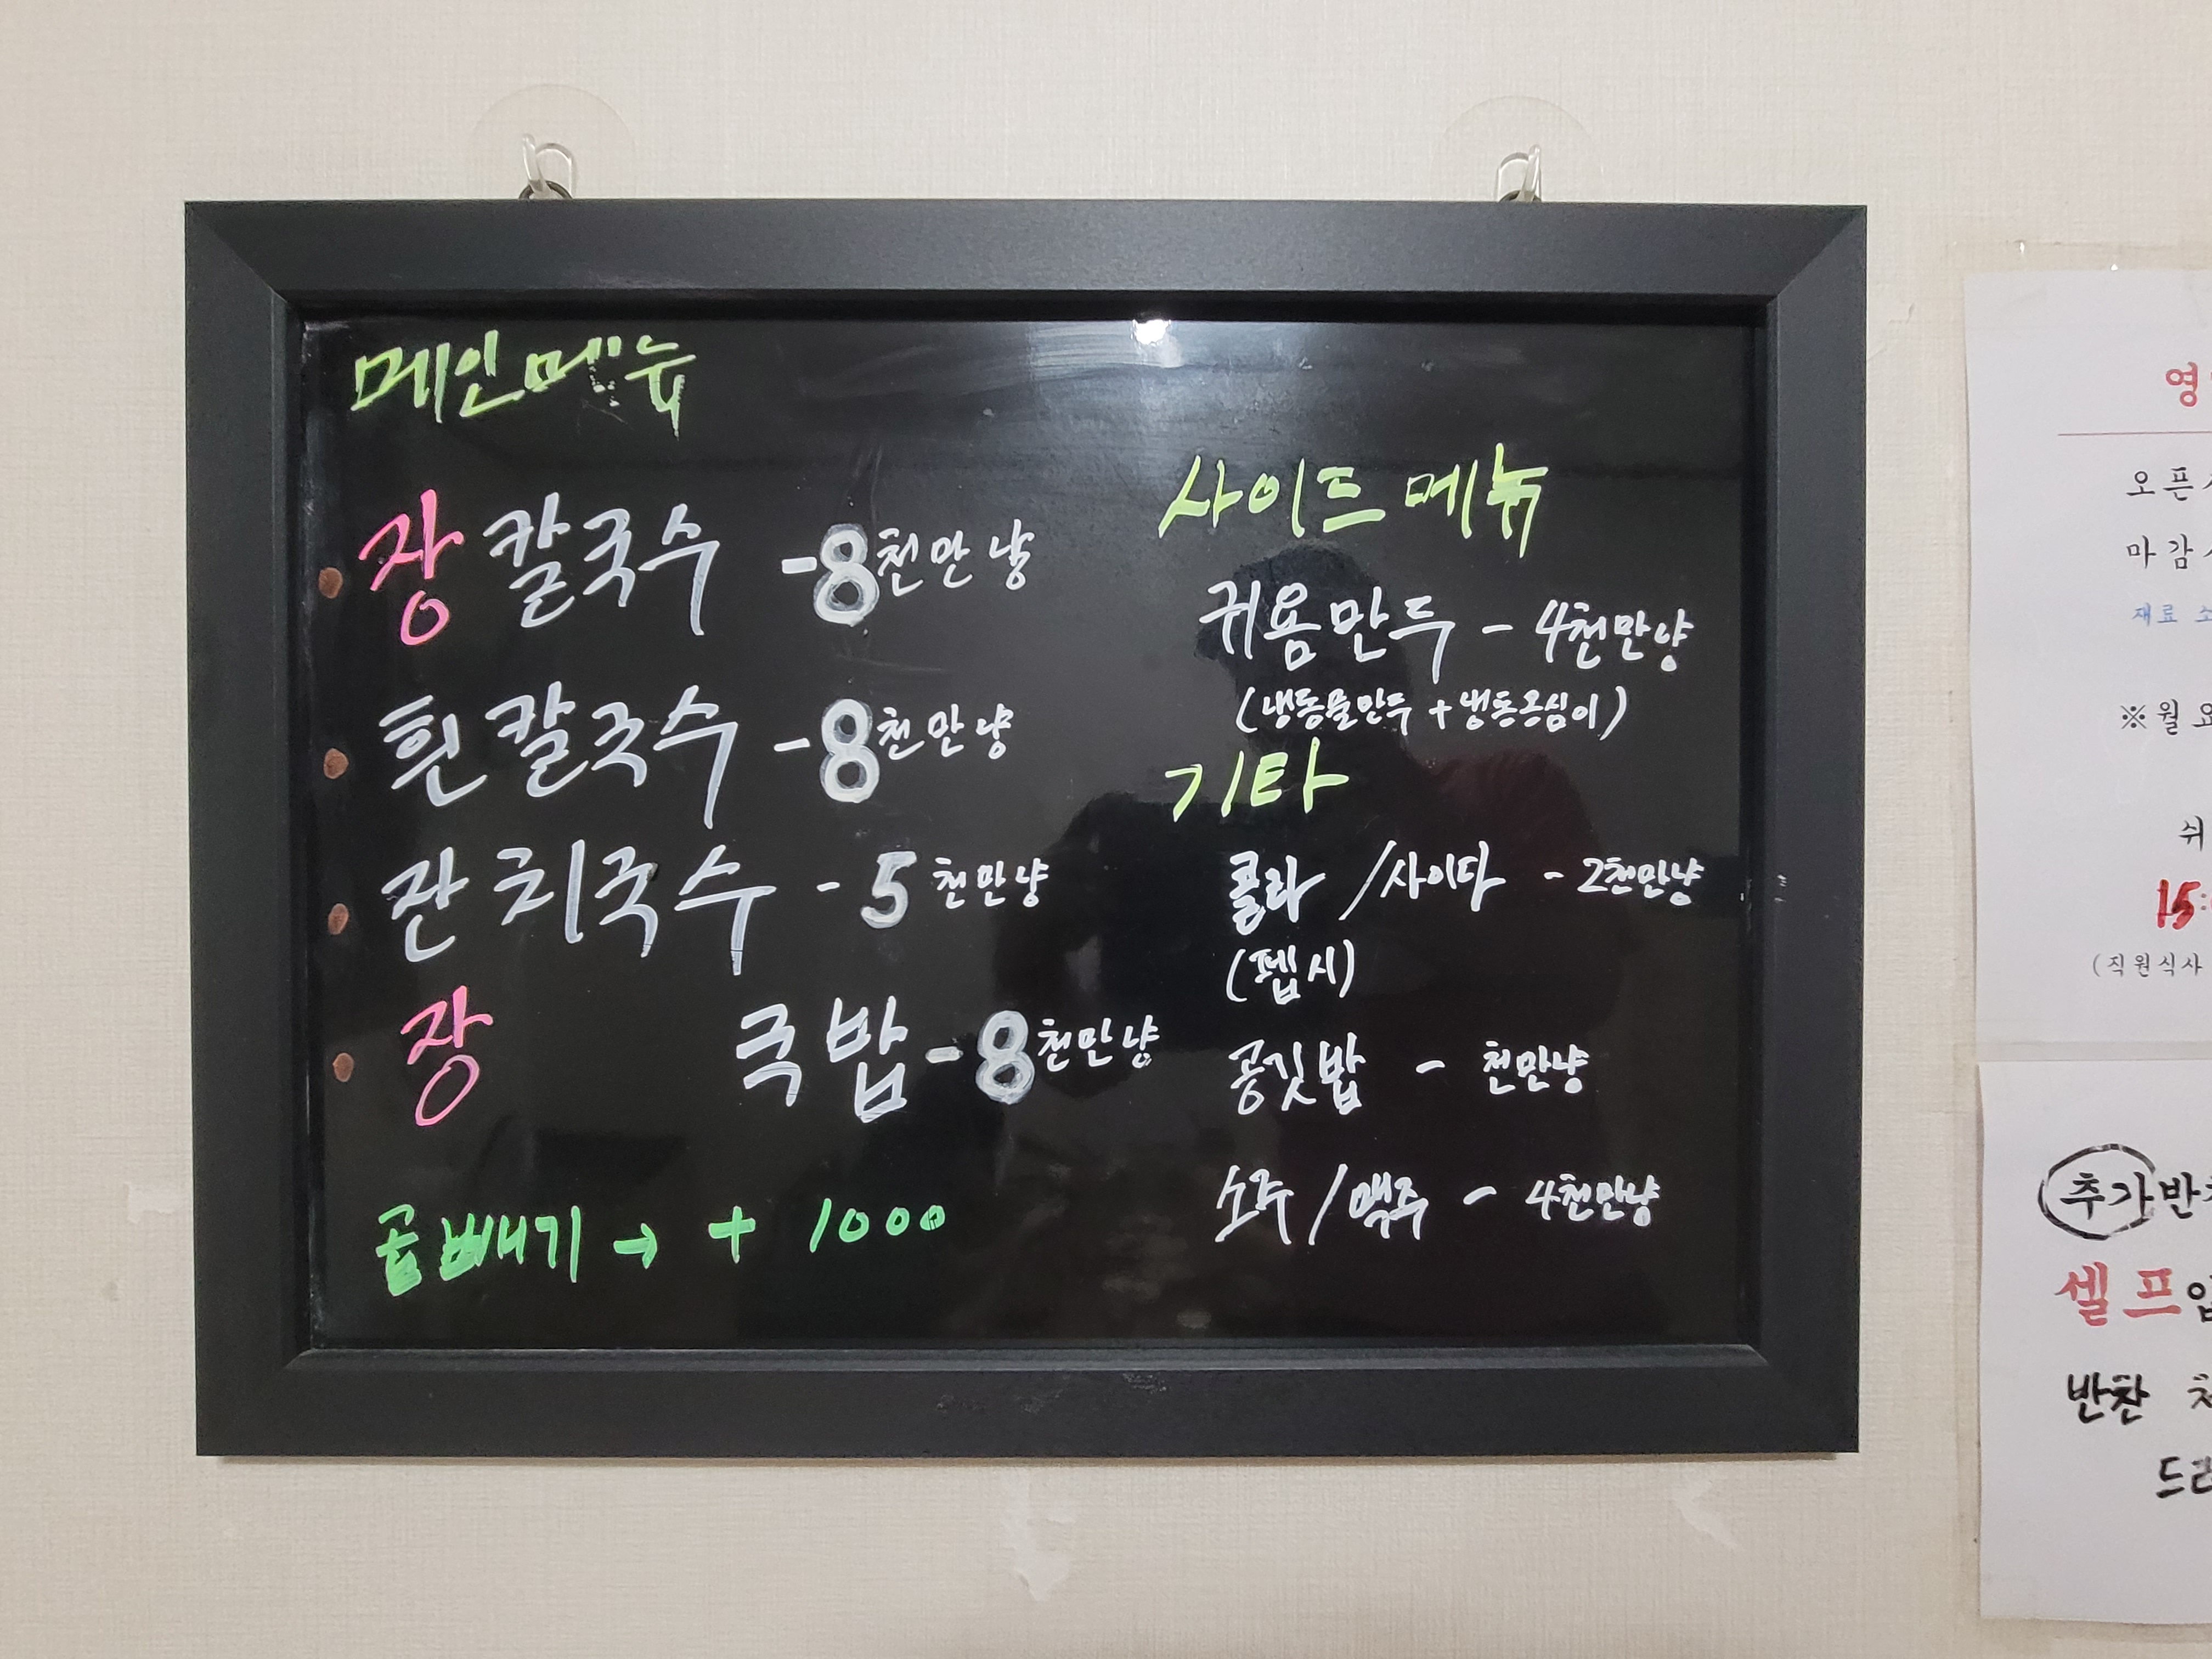 메인메뉴
장칼국수 -8천만냥
흰칼국수 -8천만냥
잔치국수 - 5천만냥
장 국밥 -8천만냥
곱빼기 → + 1000
사이드메뉴
귀욤만두 - 4천만냥
(냉동물만두 + 냉동옹심이)
기타
콜라 /사이다 - 2천만냥
(펩시)
공깃밥 - 천만냥
소주 / 맥주 - 4천만냥
영
오픈
마감
재료 소
※월요
쉬
15:
(직원식사
추가반
셀프
반찬
드리